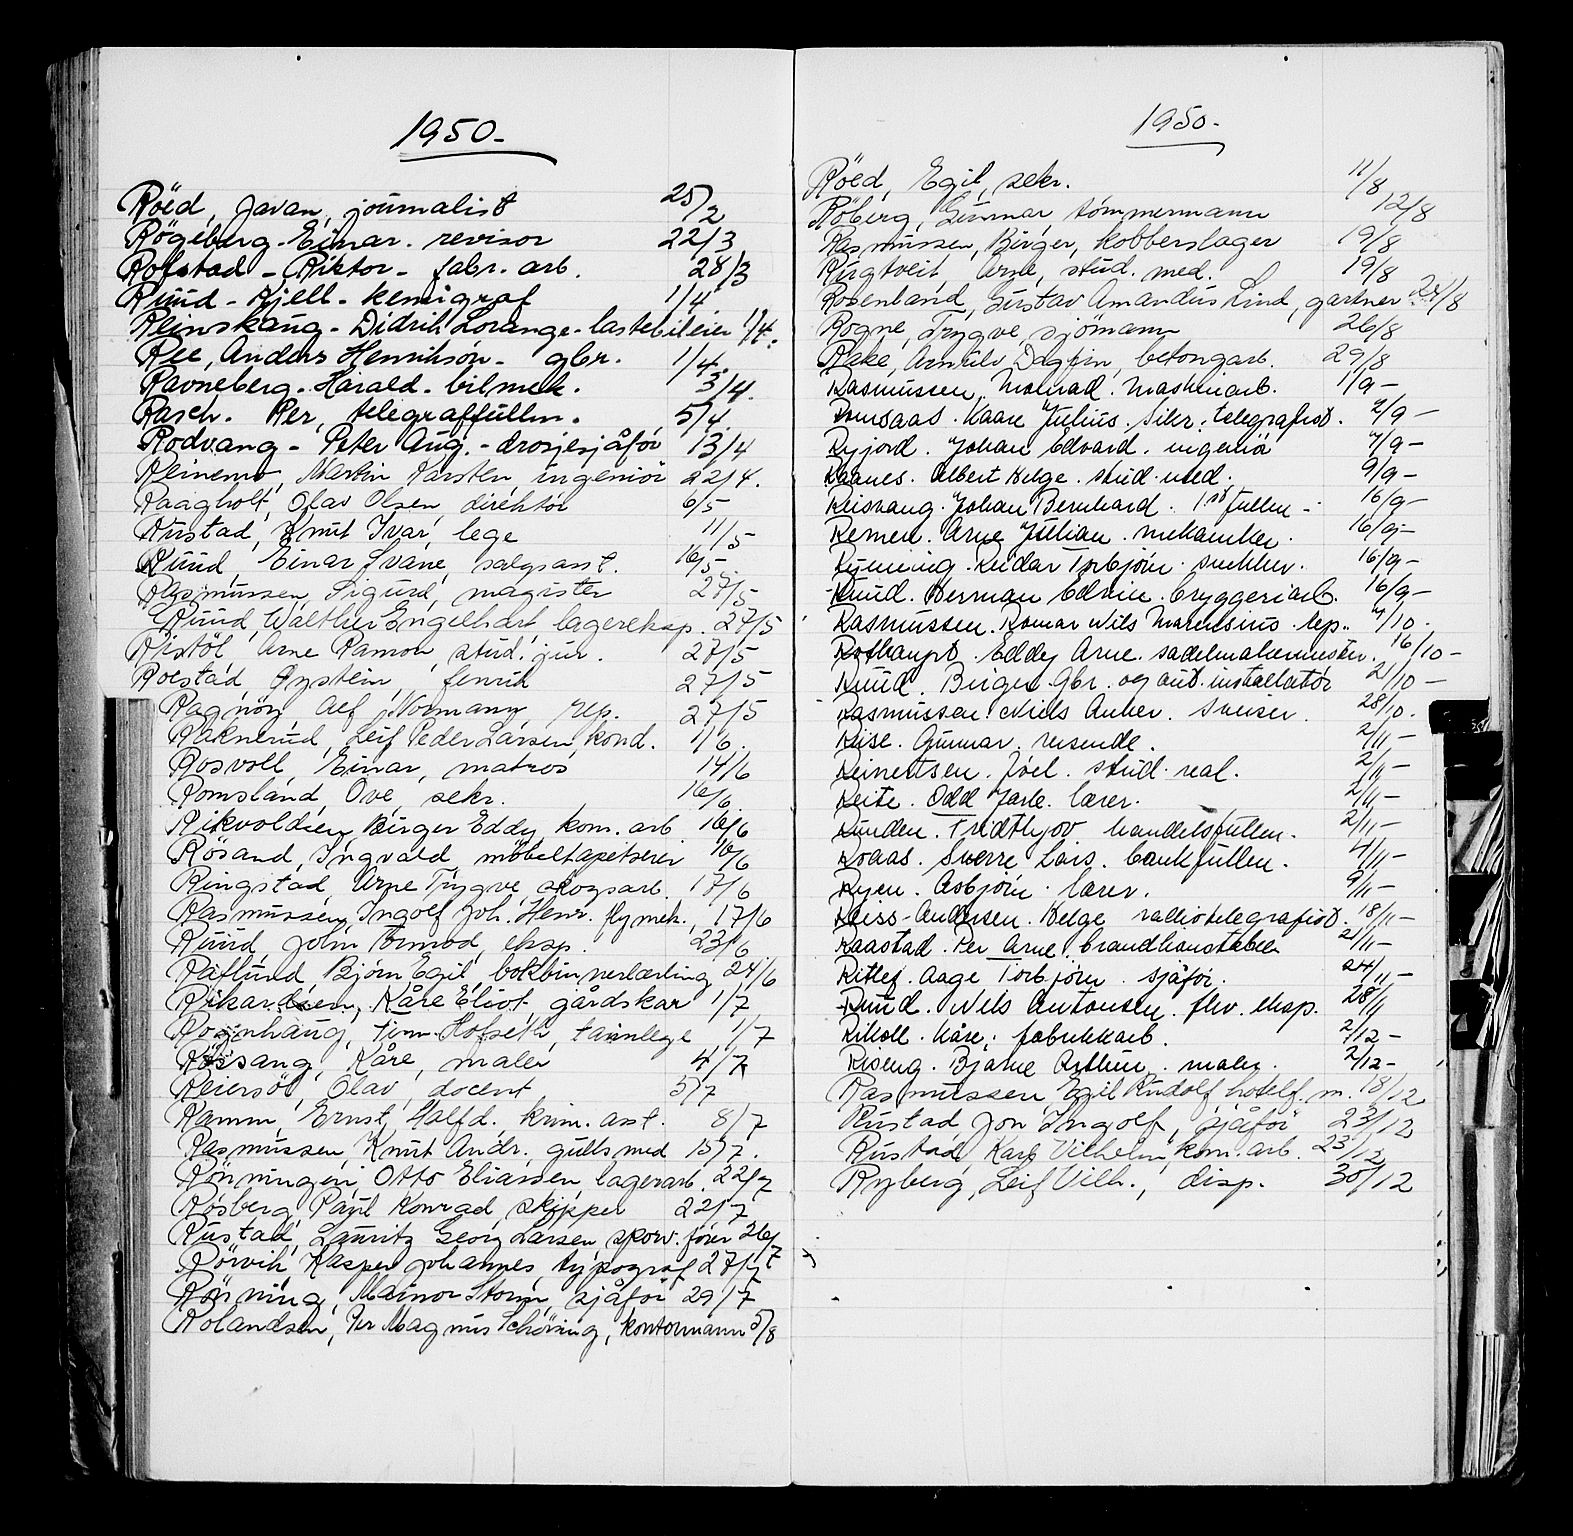 1950.-
Röed, Javan, journalist 25/2
Rögeberg - Einar - revisor 22/3
Rofstad - Riktor - fabr. arb. 28/3
Ruud - Kjell - kemigraf 1/4
Reinskaug - Didrik Lorange - lastebileier 1/4.
Ree, Anders Henrikson - gbr. 1/4.
Ravneberg - Harald - bilmek. 3/4.
Rasch - Per, telegraffullm. 5/4.
Rodvang - Peter Aug. - drosjesjåför 13/4
Reinemo, Martin Karsten ingeniör 22/4.
Raagholt, Olav Olsen direktör 6/5
Rustad, Knut Ivar, lege 11/5
Ruud, Einar Svane, salgsasst. 16/5.
Rasmussen, Sigurd, magister 27/5
Ruud, Walther Engelhart lagereksp. 27/5
Ristöl, Arne Ramon, stud. jur. 27/5
Roestad, Öystein, fenrik 27/5
Ragnöy, Alf Normann rep. 27/5
Raknerud, Leif Peder Larsen, kond. 1/6.
Rosvoll, Einar, matros 14/6
Romsland, Ove, sekr. 16/6
Rikvoldsen, Birger Eddy, kom. arb 16/6
Rösand, Ingvald, möbeltapetserer 16/6
Ringstad, Arne Trygve, skogsarb. 17/6
Rasmussen, Ingolf Joh. Henr. flymek., 17/6
Ruud, John Tormod, eksp. 23/6
Råflund, Björn Egil, bokbinnerlærling 24/6
Rikardsen, Kåre Eliot, gårdskar 1/7
Rosenhaug, Finn Hofseth, tannlege 1/7
Rössang, Kåre, maler 4/7
Reiersöl, Olav, docent 5/7
Ramm, Ernst Halfd., krim. asst. 8/7
Rasmussen, Knut Andr. gullsmed 15/7.
Rönningen, Otto Eliassen, lagerarb. 22/7
Rösberg, Paul Konrad skipper 22/7
Rustad, Lauritz Georg Larsen, sporv. förer 26/7
Rörvik Kasper Johannes, typograf 27/7
Rönning, Mainor Storm, sjåför 29/7
Rolandsen, Per Magnus Schöning, kontormann 5/8
1950.-
Röed, Egil, sekr. 11/8
Röberg, Gunnar tömmermann 12/8
Rasmussen, Birger, kobberslager 19/8
Rugtveit, Arne, stud. med. 19/8
Rosenland, Gustav Amandus Lind, gartner 24/8
Rogne, Trygve, sjömann 26/8
Rake, Arnulv Dagfin, betongarb. 29/8
Rasmussen, Malmad. Maskinarb. 1/9 -
Romsaas. Kaare Julius. Sikr. telegrafist. 2/9 -
Ryjord. Johan Edvard. ingeniör 7/9 -
Raanes. Albert Helge. stud. med. 9/9 -
Reisvang. Johan Bernhard. 1st fullm - 16/9 -
Remen. Arne Julian. mekaniker. 16/9 -
Rynning. Reidar Torbjörn. snekker. 16/9 -
Ruud. Herman Edvin. bryggeriarb. 16/9 -
Rasmussen. Romar Nils Marelsius. rep.. 7/10.
Rothaupt. Eddy Arne. sadelmakermester. 16/10 -
Ruud. Birger. Gbr. og aut. installatör 21/10 -
Rasmussen. Niels Anker. Sveiser. 28/10.
Reise. Gunnar. reisende. 2/11 -
Reinertsen. Joel. stud. real. 2/11 -
Reite. Odd Jarle. lærer. 2/11 -
Runden. Fridthjov handelsfullm. 2/11 -
Roaas. Sverre Lars. bankfullm. 4/11 -
Ryen. Asbjörn. lærer. 9/11 -
Reiss-Andersen. Helge radiotelegrafist. 18/11 -
Raastad. Per Arne. brandkonstabel 21/11 -
Ritlef. Aage Torbjörn sjåför. 24/11 -
Ruud. Nils Antonsen. flv. eksp. 28/11
Rikoll. Kåre. fabrikkarb. 2/12 -
Riseng. Bjarne Arthur. maler. 2/12 -
Rasmussen, Egil Rudolf, hotelf. m. 18/12
Rustad Jon Ingolf, sjåför 23/12
Rustad, Karl Vilhelm, kom. arb. 23/12
Ryberg, Leif Vilh., disp. 30/12